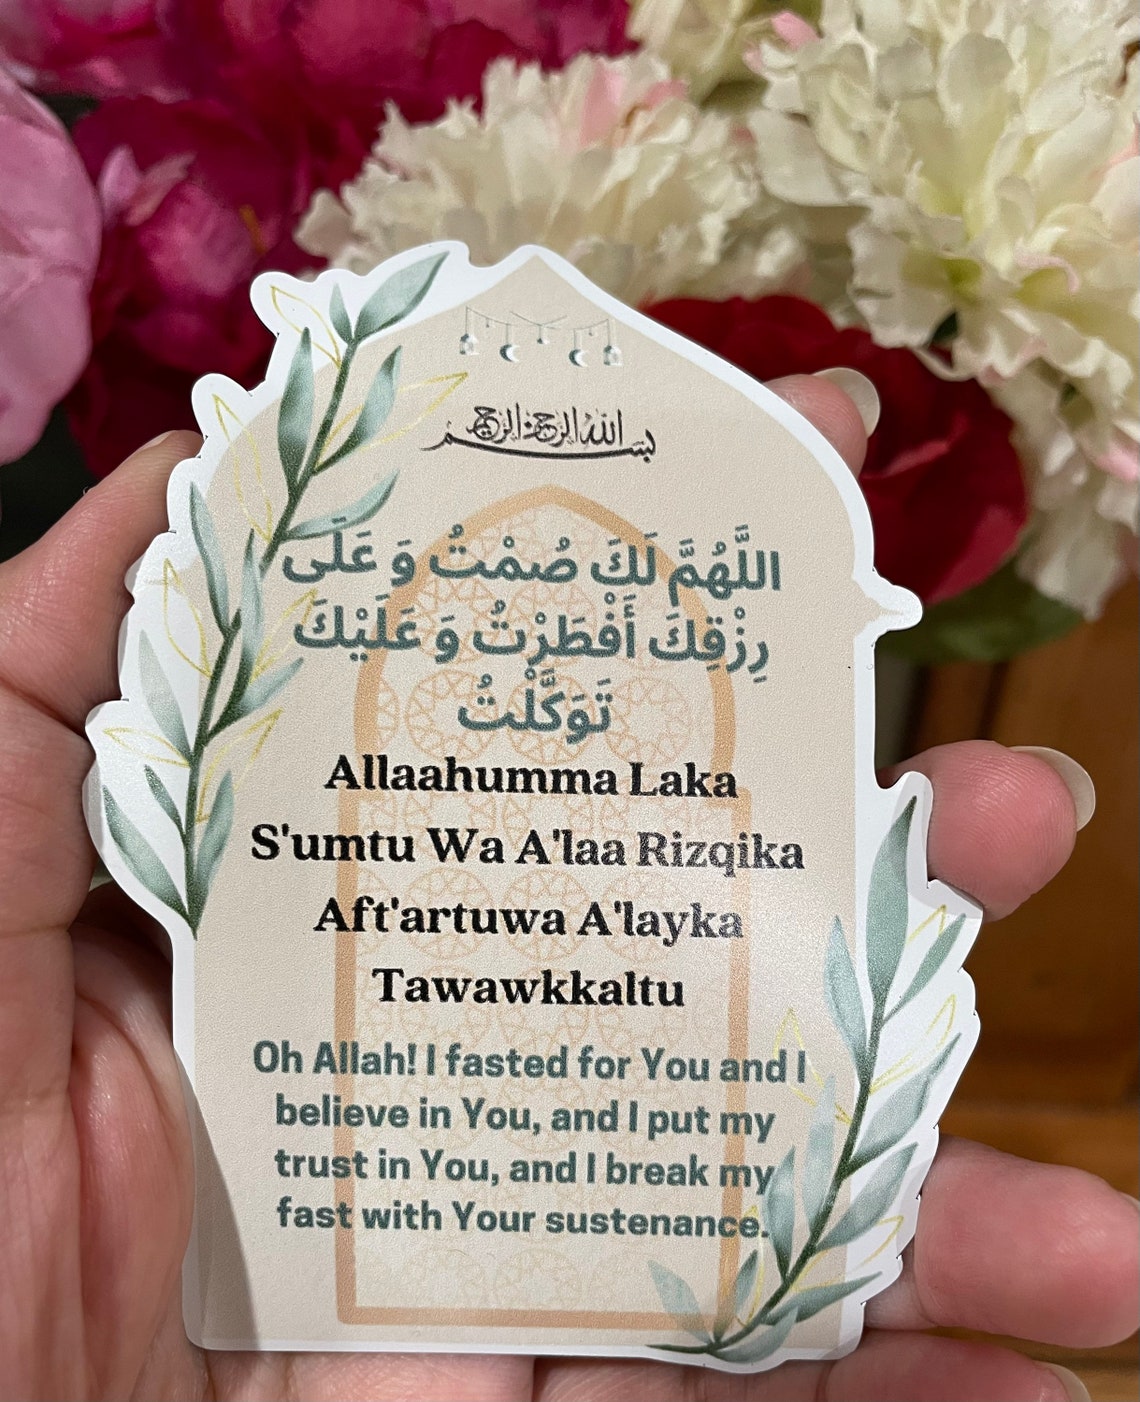 بسم الله الرحمن الرحيم
اللَّهُمَّ لَكَ صُمْتُ وَ عَلَى
رِزْقِكَ أَفْطَرْتُ وَ عَلَيْكَ
تَوَكَّلْتُ
Allaahumma Laka
S'umtu Wa A'laa Rizqika
Aft'artuwa A'layka
Tawawkkaltu
Oh Allah! I fasted for You and I
believe in You, and I put my
trust in You, and I break my
fast with Your sustenance.